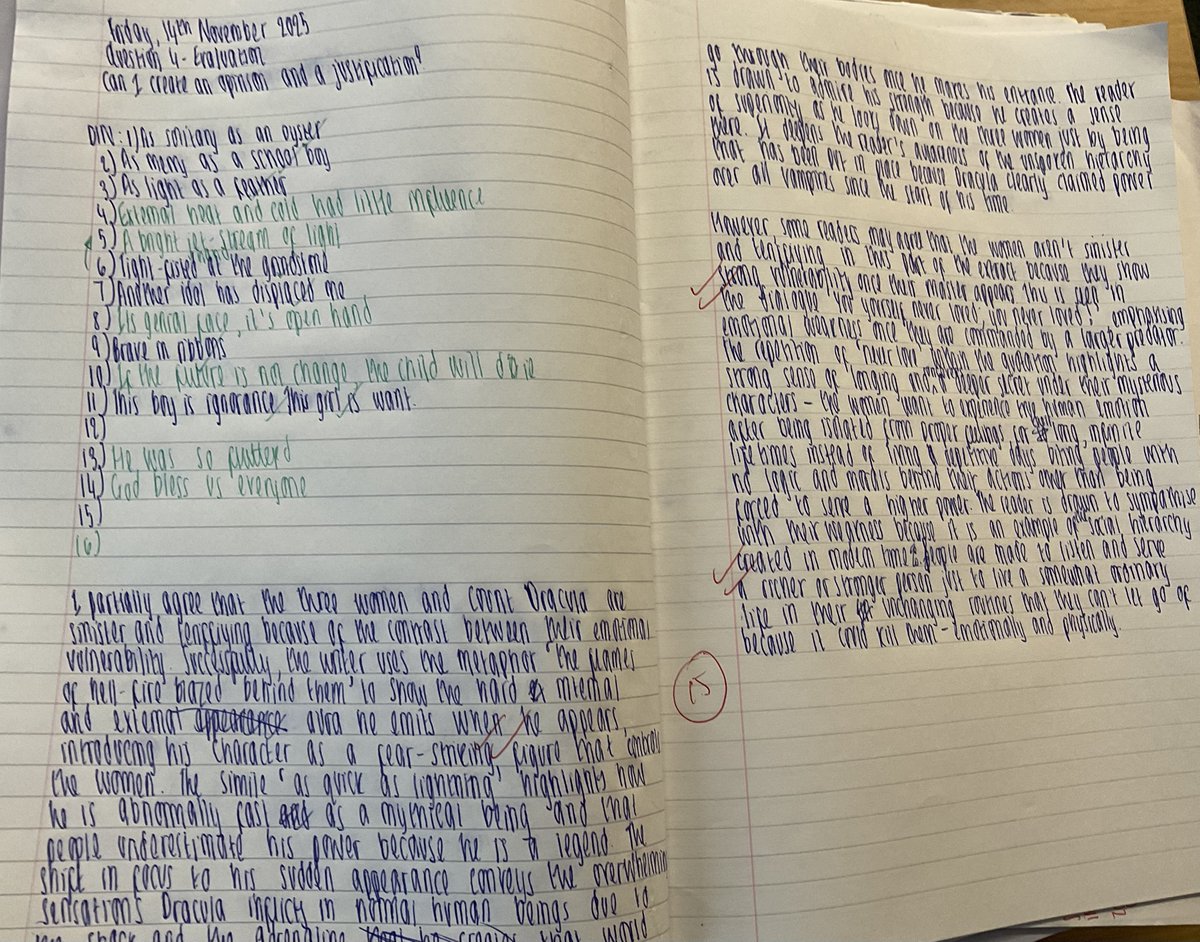 Friday, 14th November 2025
Question 4 - Evaluation
Can I create an opinion and a justification?
DIN: 1) As solitary as an oyster
2) As merry as a school boy
3) As light as a feather
4) External heat and cold had little influence
5) A bright jet-stream of light
hand
6) Tight-fisted at the grindstone
7) Another idol has displaced me
8) Its genial face, it's open hand
9) Brave in ribbons
10) If the future is not change, the child will die
11) This boy is ignorance, this girl is want.
12)
13) He was so flutterd
14) God bless us everyone
15)
16)
I partially agree that the three women and Count Dracula are
sinister and terrifying because of the contrast between their emotional
vulnerability. Successfully, the writer uses the metaphor 'the flames
of hell-fire blazed behind them' to show the hard internal
and external appearance aura he emits when he appears,
introducing his character as a fear-striking figure that controls
the women. The simile 'as quick as lightning' highlights how
he is abnormally fast as a mythical being and that
people underestimate his power because he is a legend. The
shift in focus to his sudden appearance conveys the overwhelming
sensations Dracula inflicts in normal human beings due to
the shock and the adrenaline that would
go through their bodies once he makes his entrance. The reader
is drawn to admire his strength because he creates a sense
of superiority as he looks down on the three women just by being
there. It deepens the reader's awareness of the unspoken hierarchy
that has been put in place because Dracula clearly claimed power
over all vampires since the start of his time.
However some readers may agree that the woman aren't sinister
and terrifying in this part of the extract because they show
strong vulnerability once their master appears. This is seen in
the dialogue 'you yourself never loved, you never love!' emphasising
emotional awareness once they are commanded by a larger predator.
The repetition of 'never love' the audience highlights a
strong sense of longing and a deeper secret under their mysterious
characters - the women want to experience true human emotion
after being isolated from proper feelings for long, infinite
lifetimes instead of living repetitive days biting people with
no logic and morals behind their actions other than being
forced to serve a higher power. The reader is drawn to sympathise
with their weakness because it is an example of the social hierarchy
created in modern times: people are made to listen and serve
a richer or stronger person just to live a somewhat ordinary
life in their unchanging routines that they can't let go of
because it could kill them - emotionally and physically.
15